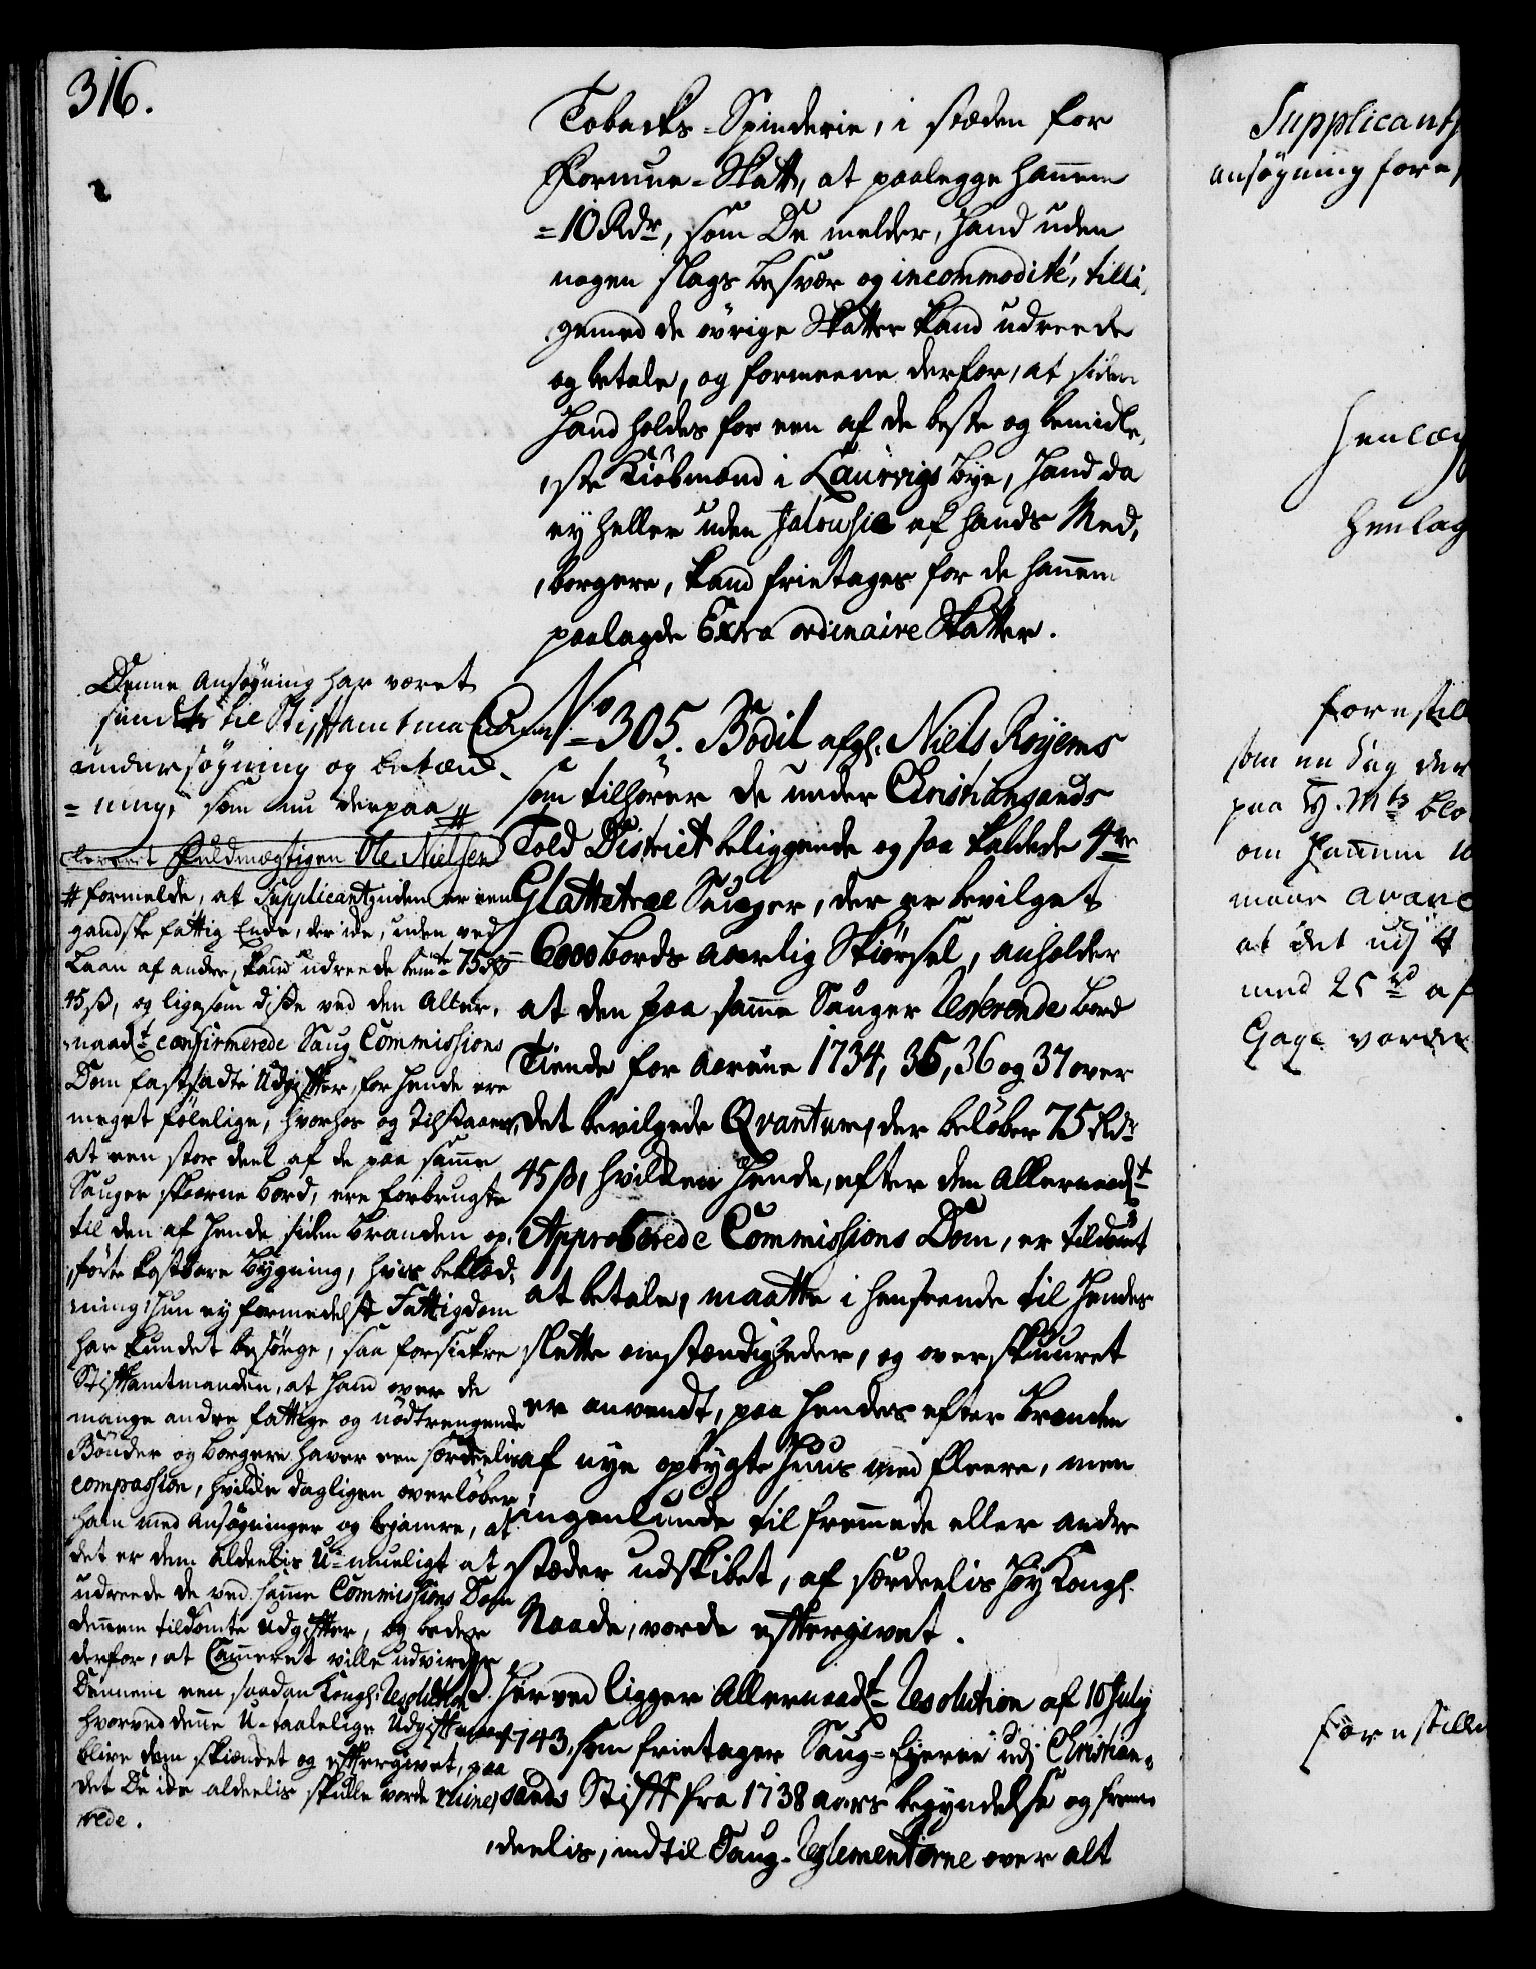 316.
Tobacks-Spinderie, i stæden for
Formue-Skatt, at paalegge hannem
=10 Rdr, som De melder, hand uden
nogen slags besvær og incommodité, tilli,
gemed de övrige Skatter kand udreede
og betale, og formeene derfor, at siden
hand holdes for een af de beste og bemidle,
,ste Kiöbmænd i Laurvigs bye, hand da
ey heller uden Jalousie af hands Med,
,borgere, kand frietages for de hannem
paalagde Extra ordinaire Skatter.
Denne Ansøgning har været
sendt til Stiftamtmanden
undersøgning og betænk-
=ning, som nu derpaa #
leveret Fuldmægtigen Ole Nielsen
# formelde, at Supplicantinden er een
gandske fattig Enke, der icke, uden ved
Laan af andre, kand udreede bemte 75 Rdr
45 ß, og ligesom disse ved den Aller,
,naadt confirmerede Saug Commissions
Dom fastsadte Udgifter for hende ere
meget følelige, hvorhos og tilstaaes,
at een stor deel af de paa samme
Sauger skaarne bord, ere forbrugte
til den af hende siden branden op,
,førte kostbare bygning, hvis beklæd,
,ning hun ey formedelst Fattigdom
har kundet besørge, saa forsickre
Stiftamtmanden, at hand over de
mange andre fattige og nödtrengende
Bönder og borgere haver een særdeelis
compassion, hvilcke dagligen overløber
ham med Ansøgninger og bejamre, at
det er dem aldeelis U-mueligt at
udreede de ved samme Commissions Dom
dennem tildömte Udgifter, og beder
derfor, at Cammeret ville udvircke
Dennem een saadan Kongl. Resolution
hvorved denne U-taalelige Udgift
blive dem skiænket og eftergivet, paa
det De icke aldeelis skulle vorde ruine,
,rede.
No 305. Bodil afgl. Niels Röyems
som tilhører de under Christiansands
Told District beliggende og saa kaldede 4re
Glattetræ Sauger, der er bevilget
6000 bords aarlig Skiörsel, anholder
at den paa samme Sauger Resterende bord
Tiende for Aarene 1734, 35, 36 og 37 over
det bevilgede Qvantum, der beløber 75 Rdr
45 ß, hvilken hende, efter den Allernaadt
Approberede Commissions Dom, er tildömt
at betale, maatte i henseende til hendes
slette omstændigheder, og overskuuret
er anvendt, paa hendes efter branden
af nye opbygte huus med fleere, men
ingenlunde til fremmede eller andre
stæder udskibet, af særdeelis høy Kongl.
Naade, vorde eftergivet.
Herved ligger Allernaadt Resolution af 10 July
1743, som frietager Saug-Eyerne udj Christian,
sands Stift fra 1738 aars begyndelse og frem
,deelis, indtil Saug-Reglementerne over alt
Supplicant
ansøgning fore
henlæg
henlag
forestill
som en Dag der
paa Ey. Mts
om hannem
maae avanc
at det udj
med 25 rd af
Gage vorde
forestille